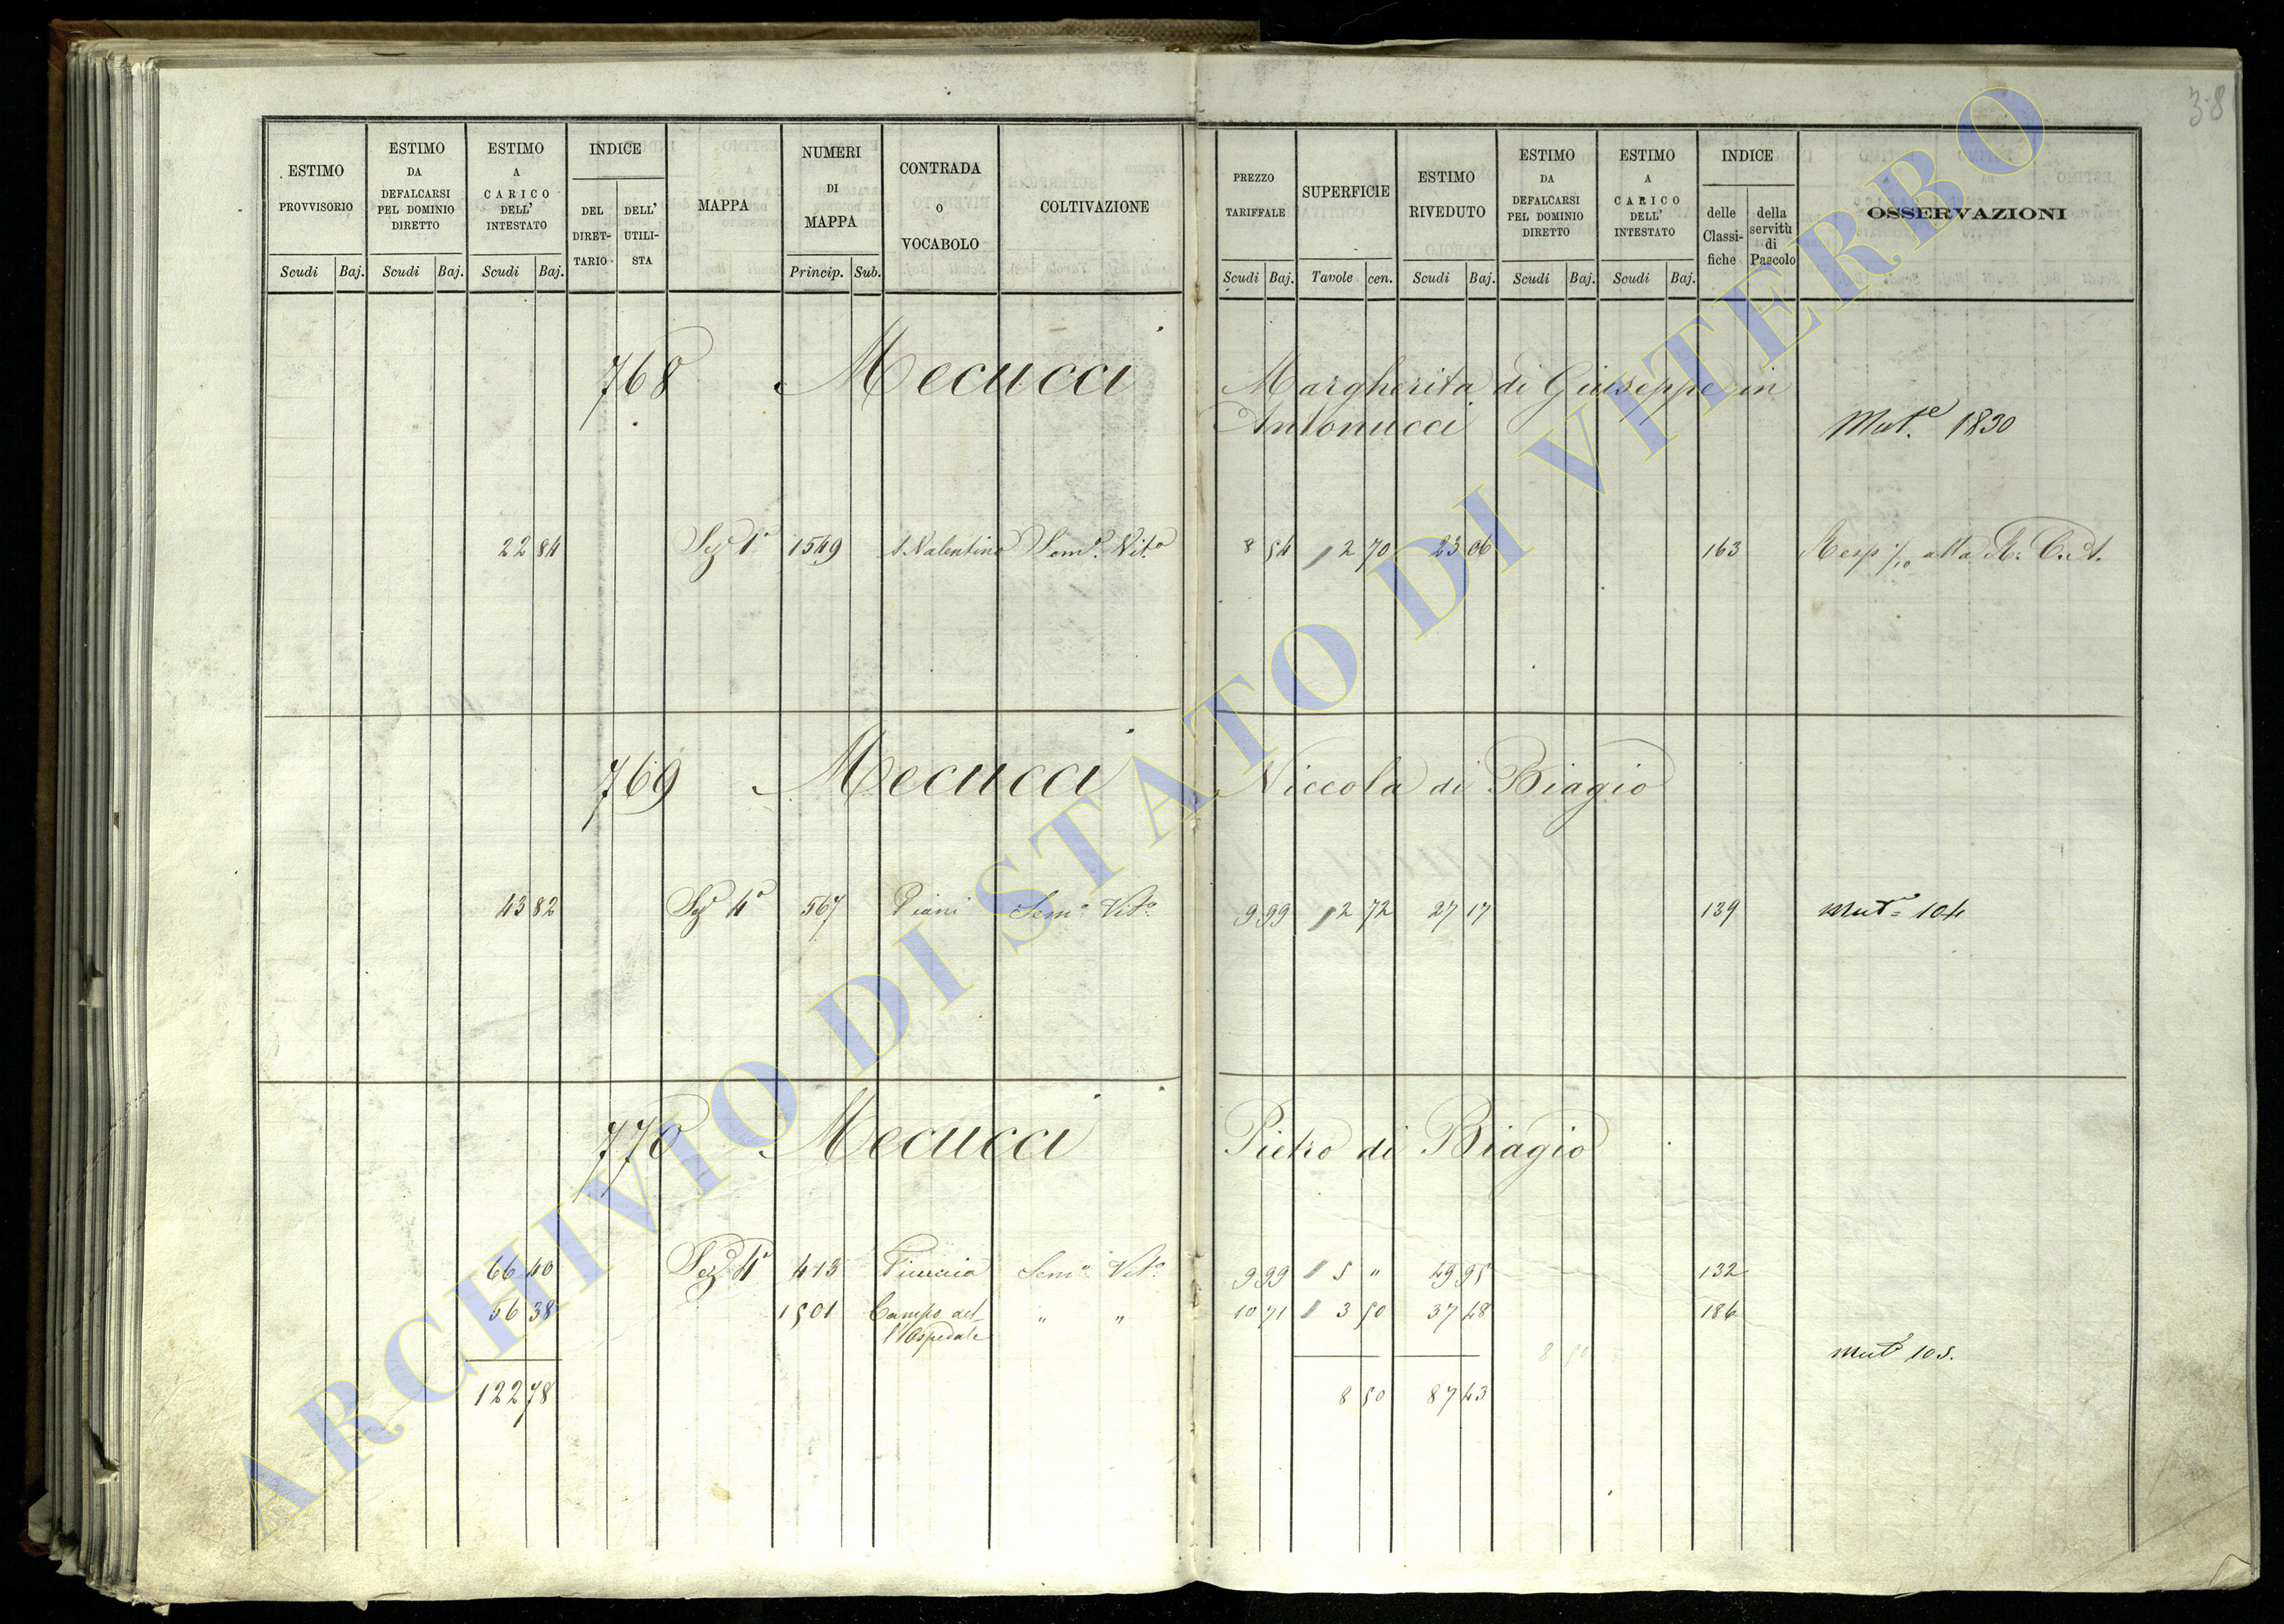 38
ESTIMO PROVVISORIO
Scudi Baj.
ESTIMO DA DEFALCARSI PEL DOMINIO DIRETTO
Scudi Baj.
ESTIMO A CARICO DELL' INTESTATO
Scudi Baj.
INDICE
DEL DIRET-TARIO
DELL' UTILI-STA
MAPPA
NUMERI DI MAPPA
Princip. Sub.
CONTRADA O VOCABOLO
COLTIVAZIONE
PREZZO TARIFFALE
Scudi Baj.
SUPERFICIE
Tavole cen.
ESTIMO RIVEDUTO
Scudi Baj.
ESTIMO DA DEFALCARSI PEL DOMINIO DIRETTO
Scudi Baj.
ESTIMO A CARICO DELL' INTESTATO
Scudi Baj.
INDICE
delle Classi-fiche
della servitù di Pascolo
OSSERVAZIONI
768 Mecucci Margherita di Giuseppe in
Antonucci
Mut.e 1830
22 84 Sez 1a 1549 S. Valentino Sem.o Vit.o 8 54 2 70 23 06 163 Resp 1/10 alla R. C. A.
769 Mecucci Niccola di Biagio
43 82 Sez 4a 567 Piani Sem.o Vit.o 9 99 2 72 27 17 139 Mut.e 104
770 Mecucci Pietro di Biagio
66 40 Sez 4a 413 Sem.o Vit.o 9 99 5 " 49 95 132
56 38 1501 Campo del- " " 10 71 3 50 37 48 186
l'Ospedale
8 50
Mut.e 105.
122 78 8 50 87 43
ARCHIVIO DI STATO DI VITERBO